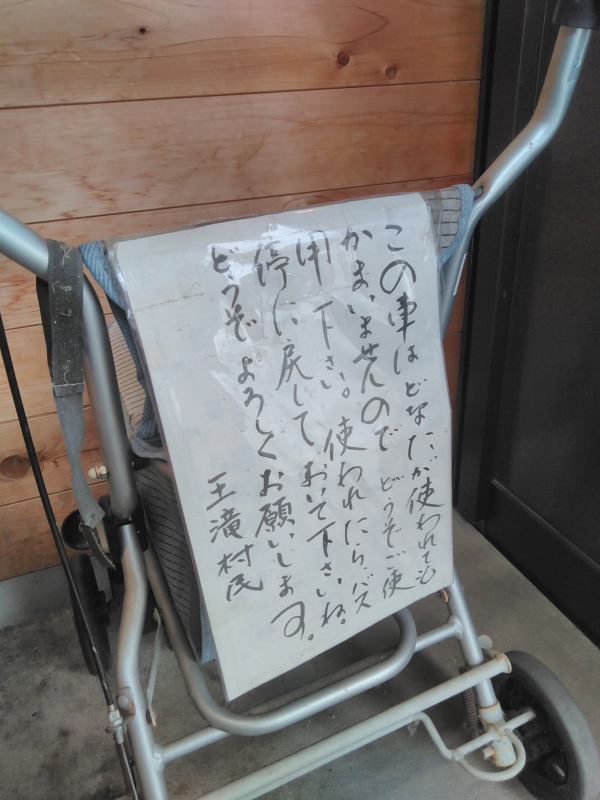 この車はどなたが使われても
かまいませんので どうぞご使
用下さい。使われたら、バス
停に戻しておいて下さいね。
どうぞよろしくお願いします。
王滝村民